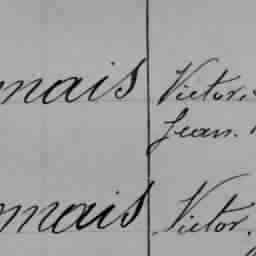 mais Victor.
Jean.
mais Victor.